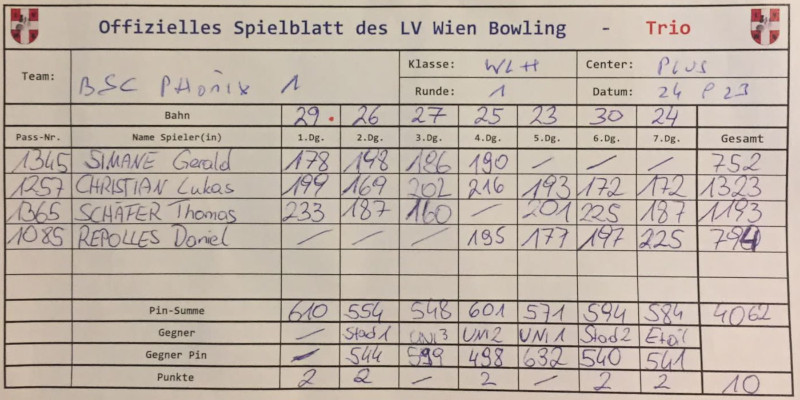 Offizielles Spielblatt des LV Wien Bowling - Trio
Team: BSC PHÖNIX 1 Klasse: WLH Center: PLUS
Runde: 1 Datum: 24 23
Bahn 29. 26 27 25 23 30 24
Pass-Nr. Name Spieler(in) 1.Dg. 2.Dg. 3.Dg. 4.Dg. 5.Dg. 6.Dg. 7.Dg. Gesamt
1345 SIMANE Gerald 178 198 186 190 – – – 752
1257 CHRISTIAN Lukas 199 169 202 216 193 172 172 1323
1365 SCHÄFER Thomas 233 187 160 – 201 225 187 1193
1085 REPOLLES Daniel – – – 195 177 197 225 794
Pin-Summe 610 554 548 601 571 594 584 4062
Gegner – Stad1 UNI3 UNI2 UNI1 Stad2
Gegner Pin – 544 599 498 632 540 541
Punkte 2 2 – 2 – 2 2 10